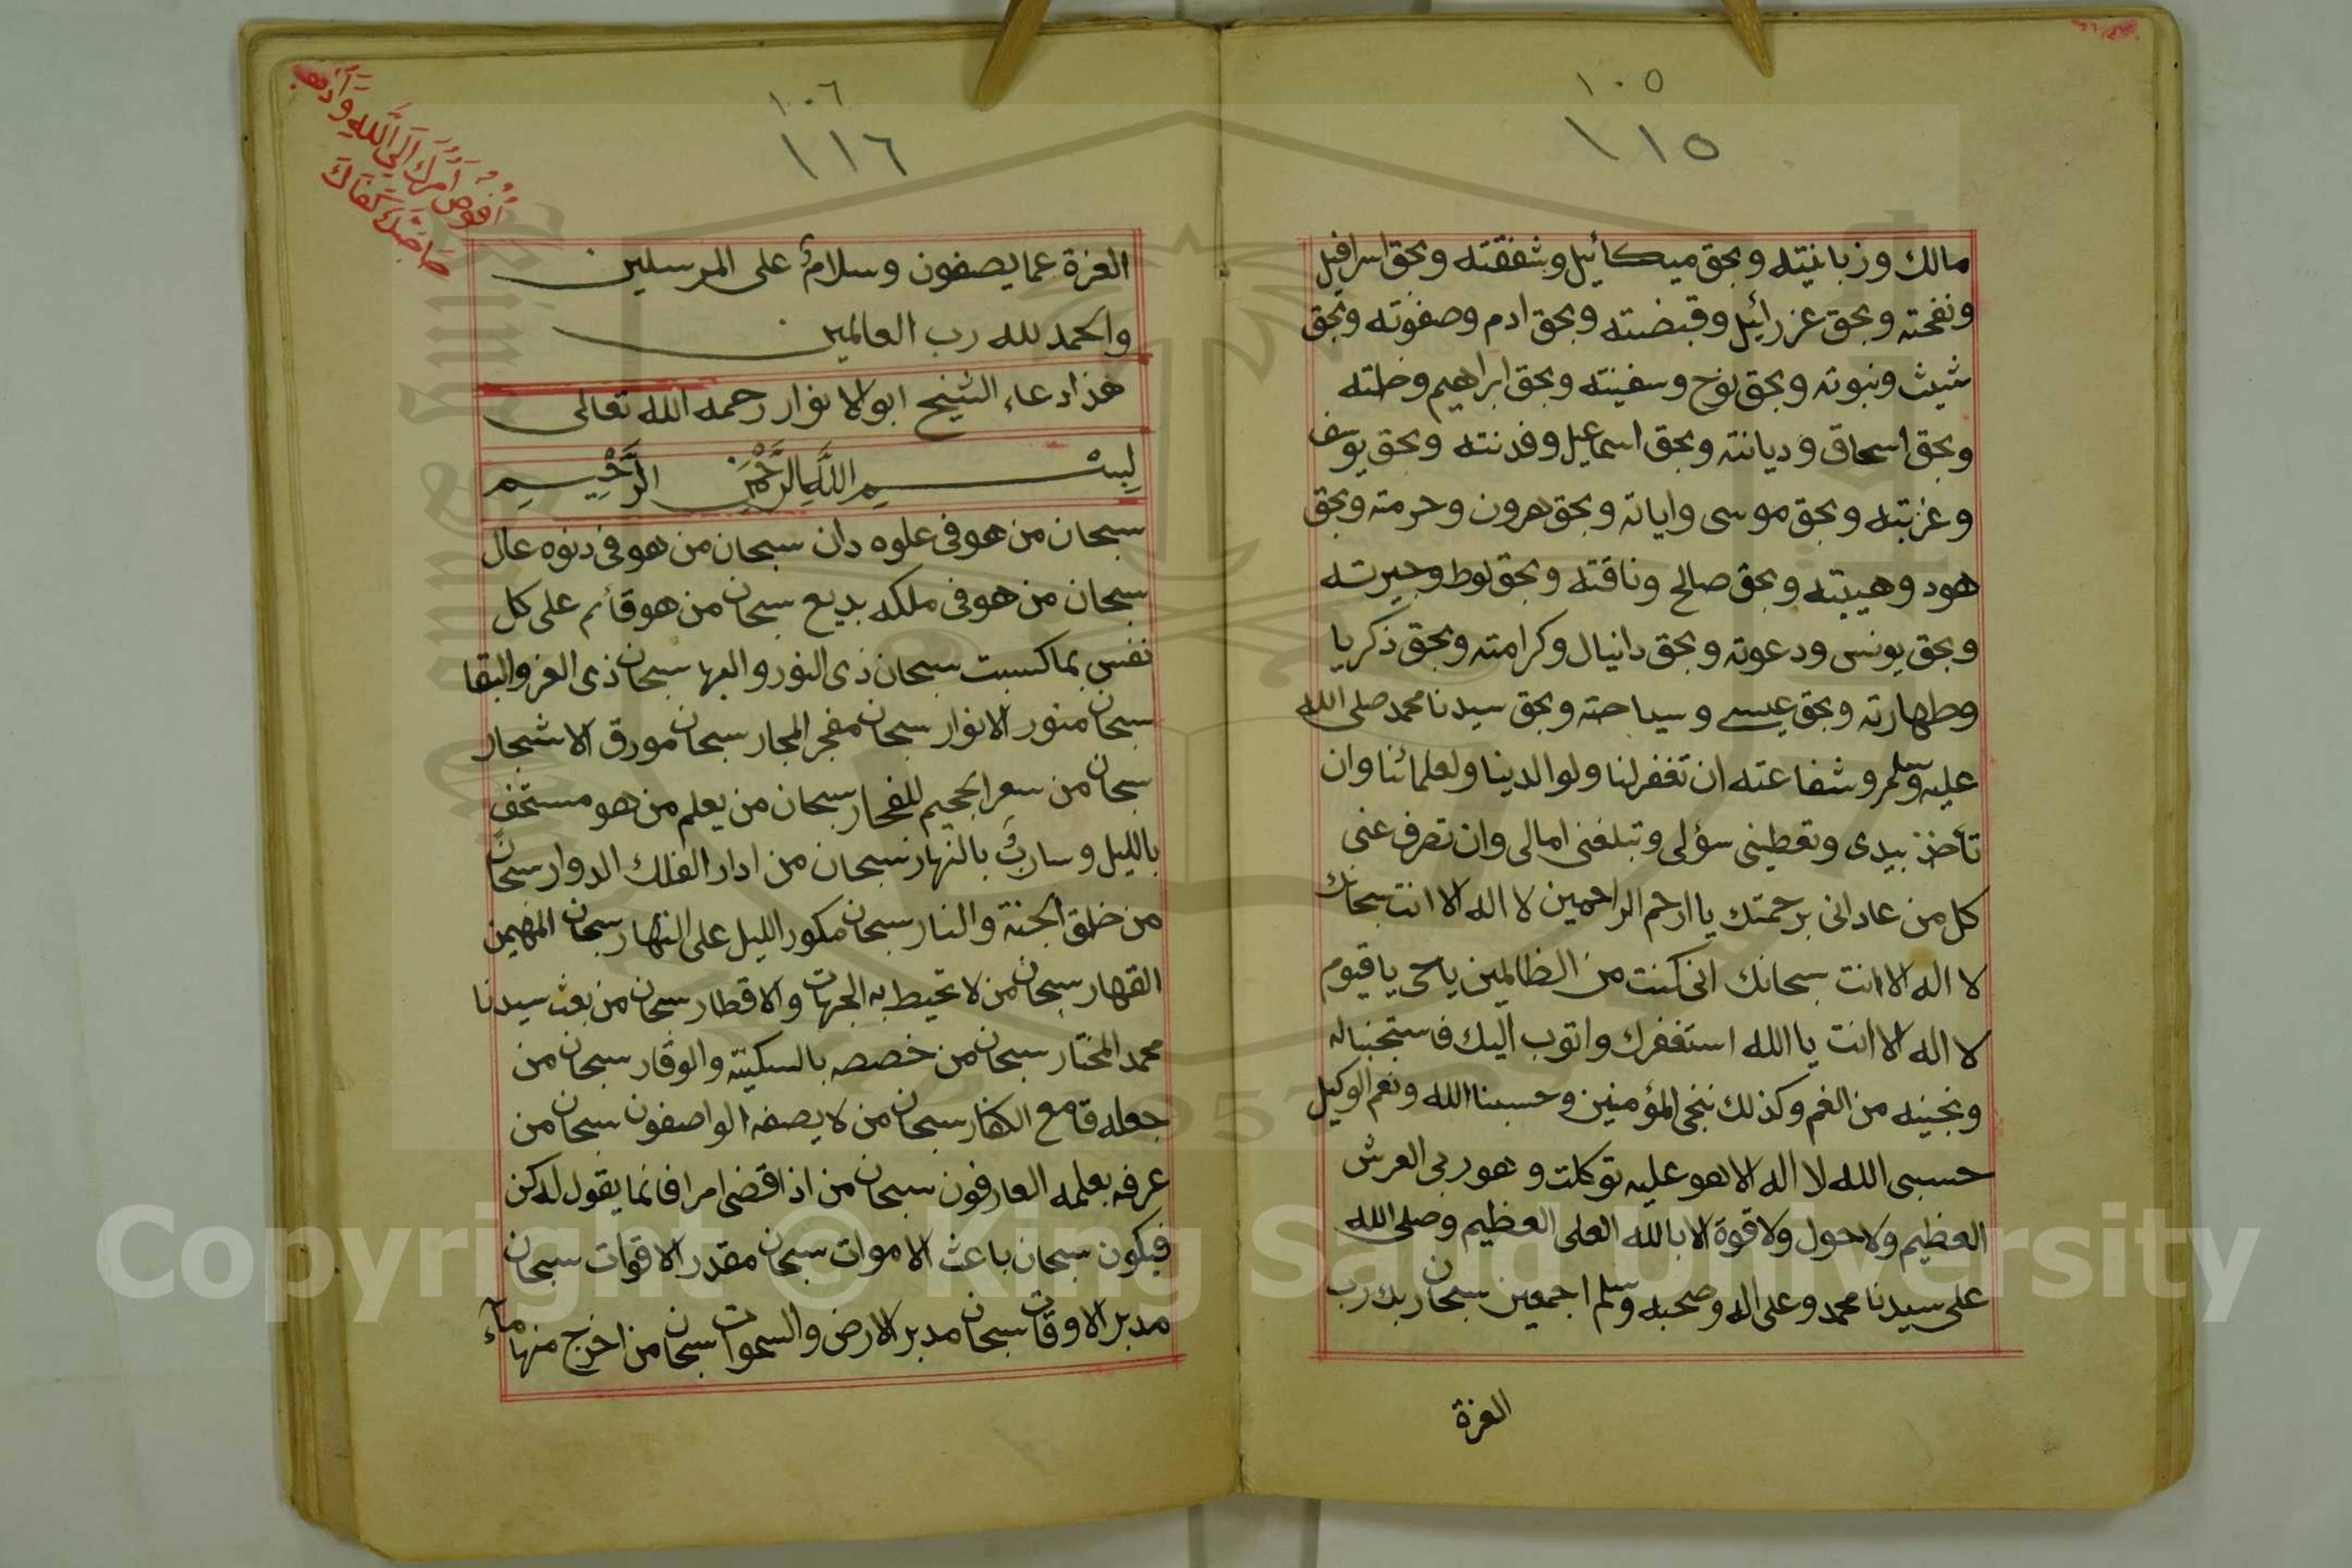 ١٠٥
١١٥
مالك وزبانيته وبحق ميكائيل وشفقته وبحق اسرافيل
ونفخته وبحق عزرائيل وقبضته وبحق ادم وصفوته وبحق
شيث ونبوته وبحق نوح وسفينته وبحق ابراهيم وخلته
وبحق اسحاق وديانته وبحق اسماعيل وفدنته وبحق يوسف
وغربته وبحق موسى واياته وبحق هرون وحرمته وبحق
هود وهيبته وبحق صالح وناقته وبحق لوط وجيرته
وبحق يونس ودعوته وبحق دانيال وكرامته وبحق ذكريا
وطهارته وبحق عيسى وسياحته وبحق سيدنا محمد صلى الله
عليه وسلم وشفاعته ان تغفر لنا ولوالدينا ولعلمائنا وان
تأخذ بيدى وتعطينى سؤلى وتبلغنى امالى وان تصرف عنى
كل من عادانى برحمتك يا ارحم الراحمين لا اله الا انت سبحانك
لا اله الا انت سبحانك انى كنت من الظالمين ياحى ياقيوم
لا اله الا انت يا الله استغفرك واتوب اليك فاستجبناله
ونجينه من الغم وكذلك ننجى المؤمنين وحسبنا الله ونعم الوكيل
حسبى الله لا اله الا هو عليه توكلت وهو ربى العرش
العظيم ولا حول ولا قوة الا بالله العلى العظيم وصلى الله
على سيدنا محمد وعلى اله وصحبه وسلم اجمعين سبحان ربك رب
العزة
١٠٦
١١٦
أفوض أمرك إلى الله
كفاك
العزة عما يصفون وسلام على المرسلين
والحمد لله رب العالمين
هذا دعاء الشيخ ابو الانوار رحمه الله تعالى
بسم الله الرحمن الرحيم
سبحان من هو فى علوه دان سبحان من هو فى دنوه عال
سبحان من هو فى ملكه بديع سبحان من هو قائم على كل
نفس بما كسبت سبحان ذى النور والبها سبحان ذى العز والبقا
سبحان منور الانوار سبحان مفجر البحار سبحان مورق الاشجار
سبحان من سعر الجحيم للفجار سبحان من يعلم من هو مستخف
بالليل وسارب بالنهار سبحان من ادار الفلك الدوار سبحان
من خلق الجنة والنار سبحان مكور الليل على النهار سبحان المهيمن
القهار سبحان من لا تحيط به الجهات والاقطار سبحان من بعث سيدنا
محمد المختار سبحان من خصصه بالسكينة والوقار سبحان من
جعله قامع الكفار سبحان من لا يصفه الواصفون سبحان من
عرفه بعلمه العارفون سبحان من اذا قضى امرا فانما يقول له كن
فيكون سبحان باعث الاموات سبحان مقدر الاقوات سبحان
مدبر الاوقات سبحان مدبر الارض والسموات سبحان من اخرج منها ماء
Copyright © King Saud University